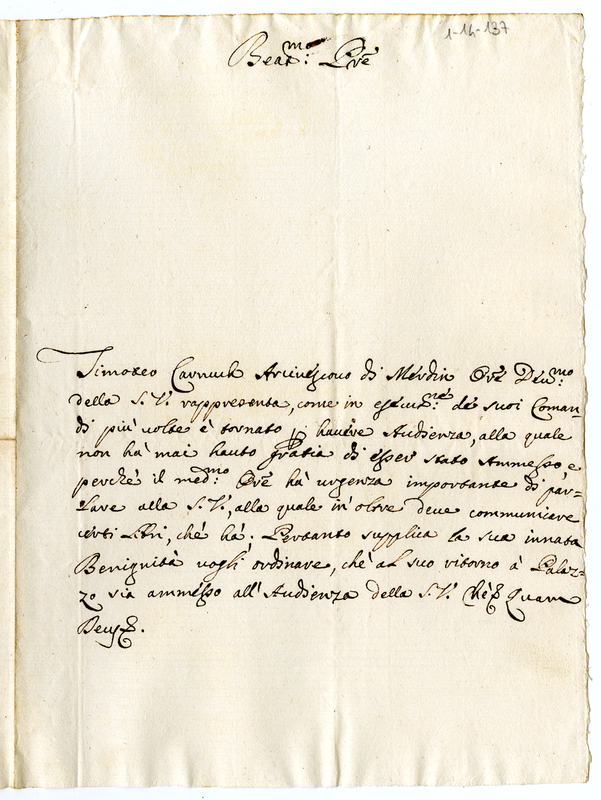 1-14-137
Beat.mo Pre
Timoteo Carnuch Arcivescovo di Merdin Ore Deu.mo
della S. V. rappresenta, come in esecu.ne de suoi Coman-
di più volte è tornato p havere Audienza, alla quale
non há mai hauto gratia di esser stato Ammesso, e
perchè il med.mo Ore há urgenza importante di par-
lare alla S. V., alla quale in oltre deve communicare
certi Libri, chè há. Pertanto supplica la sua innata
Benignità vogli ordinare, chè al suo ritorno à Palaz-
zo sia ammesso all'Audienza della S. V. Chè Quam
Deus.